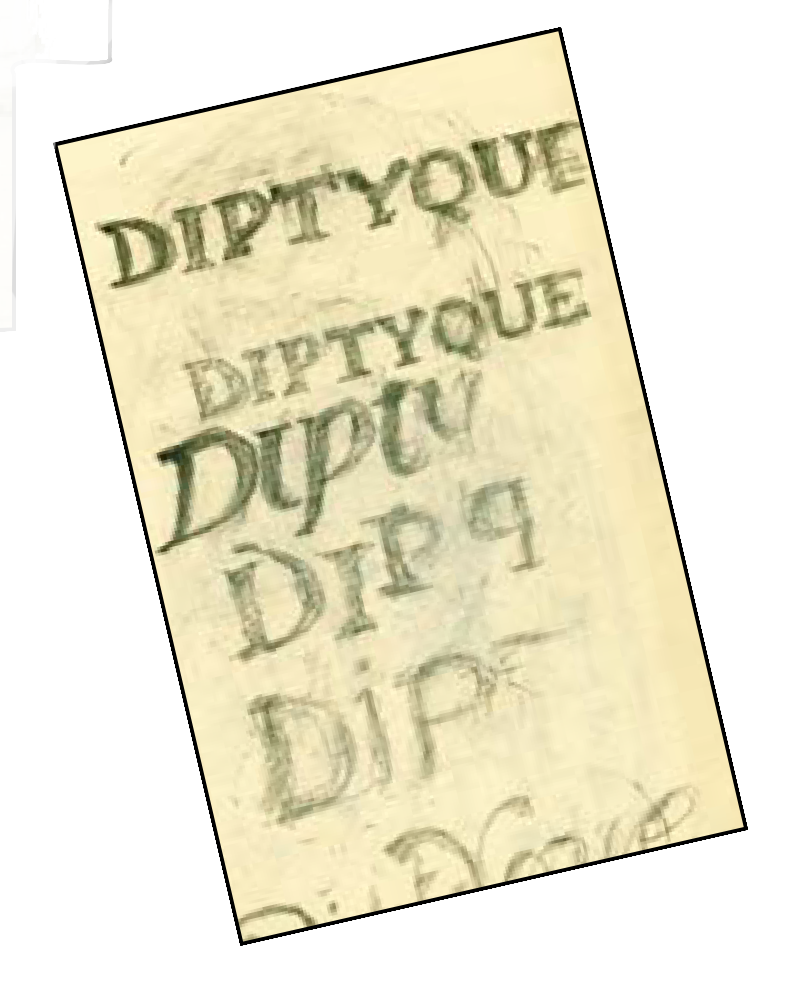 DIPTYQUE
DIPTYQUE
Dipty
DIP q
DiP